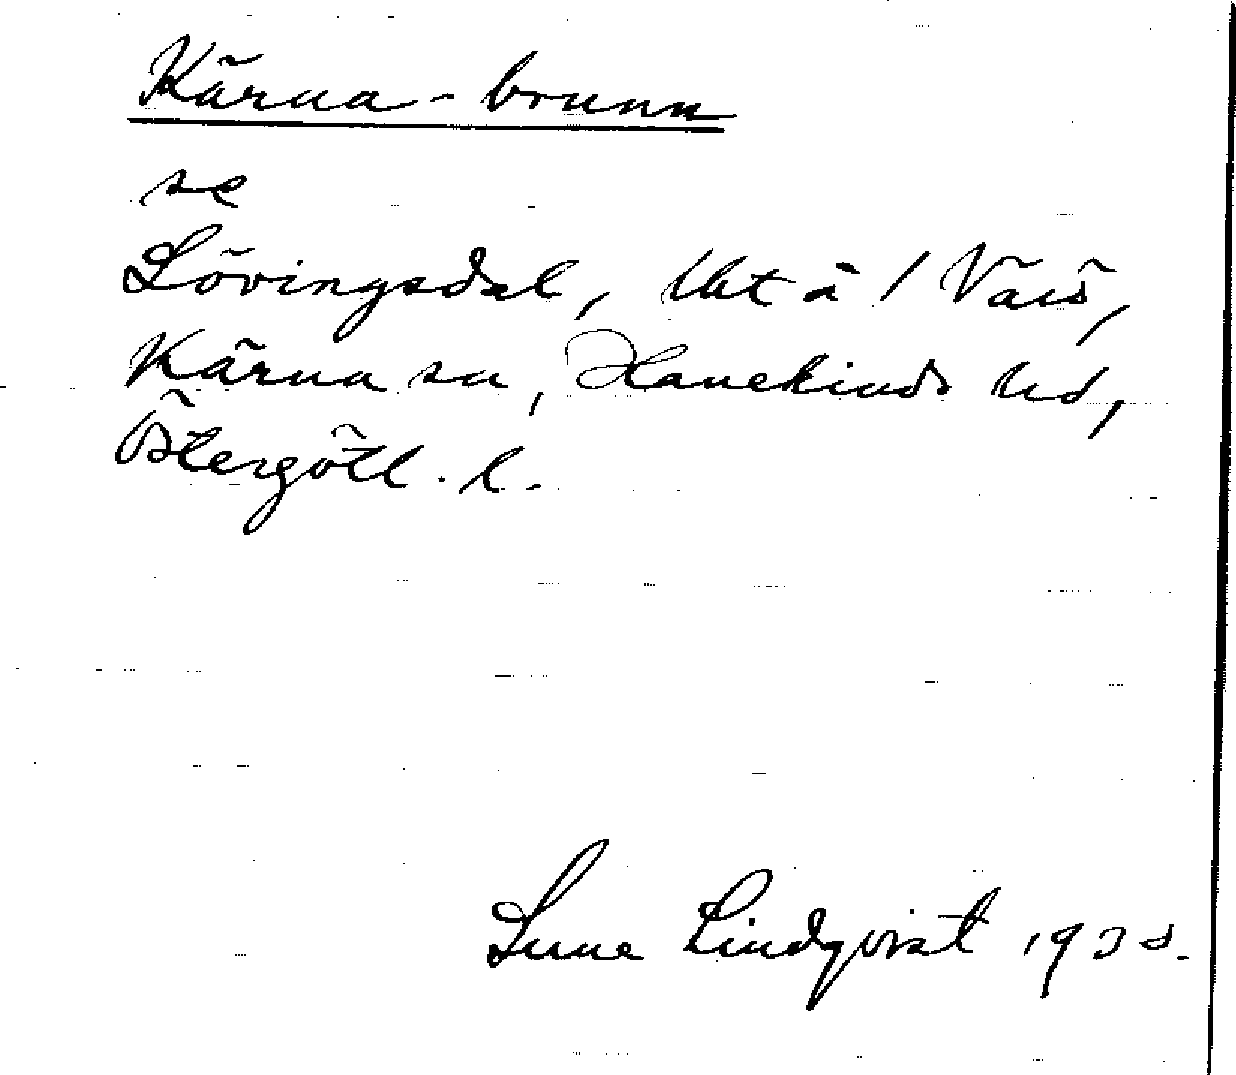 Kärna-brunn
se
Lövingsdal, lht å 1 Väis,
Kärna sn, Hanekinds hd,
Östergötl. l.
Sune Lindqvist